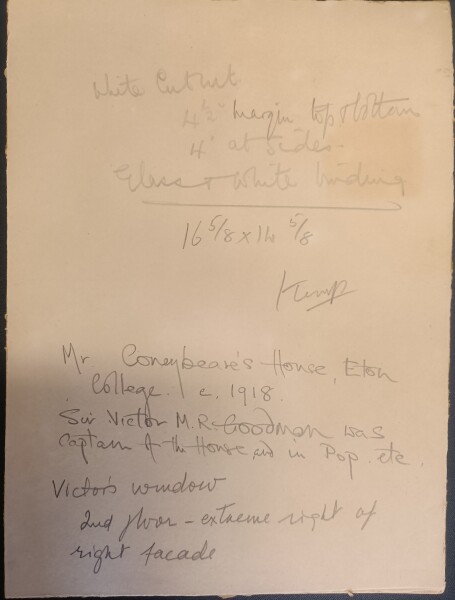 White Cut Mt.
4½" margin top & bottom
4" at sides -
Glass & White binding
16 5/8 x 16 5/8
Kemp
Mr Coneybeare's House, Eton
College. c. 1918.
Sir Victor M.R. Goodman was
Captain of the House and in Pop. etc.
Victor's window
2nd floor - extreme right of
right facade